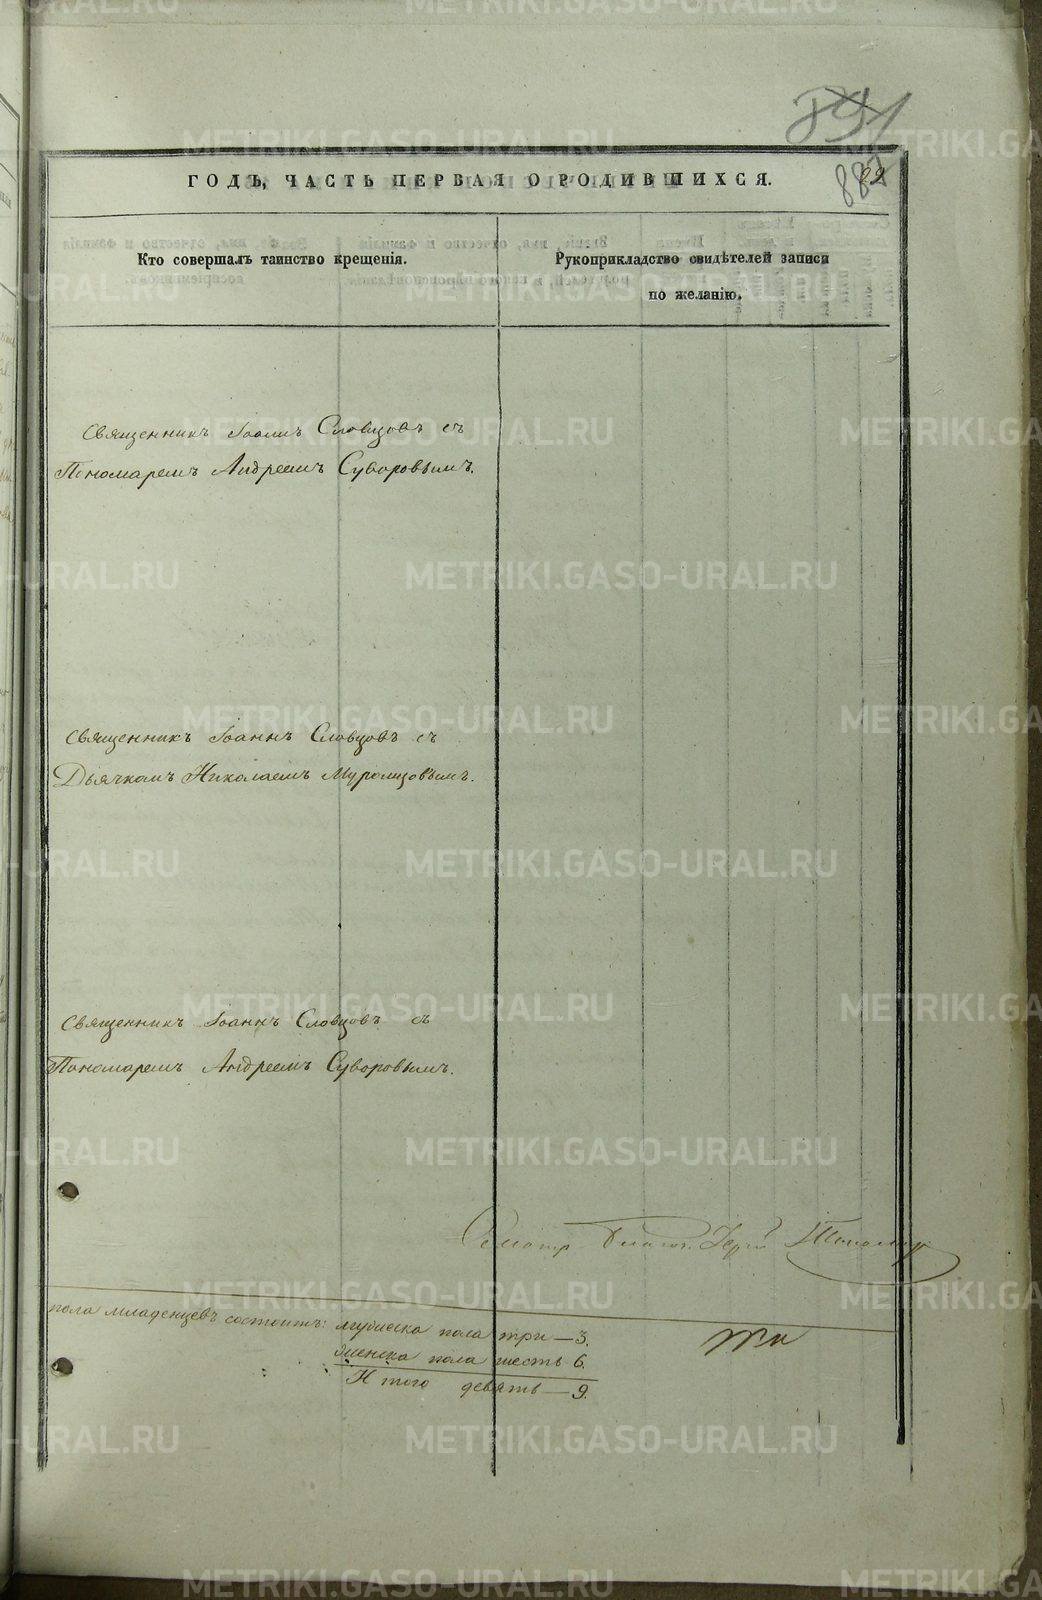 891
882
89
ГОДЪ, ЧАСТЬ ПЕРВАЯ О РОДИВШИХСЯ.
Кто совершалъ таинство крещенія.
Рукоприкладство свидѣтелей записи
по желанію.
Священникъ Іоаннъ Словцовъ съ
Пономаремъ Андреемъ Суворовымъ.
Священникъ Іоаннъ Словцовъ съ
Дьячкомъ Николаемъ Муромцовымъ.
Священникъ Іоаннъ Словцовъ съ
Пономаремъ Андреемъ Суворовымъ.
пола младенцевъ состоитъ: мужеска пола три — 3.
женска пола шесть 6.
Итого девять — 9.
METRIKI.GASO-URAL.RU